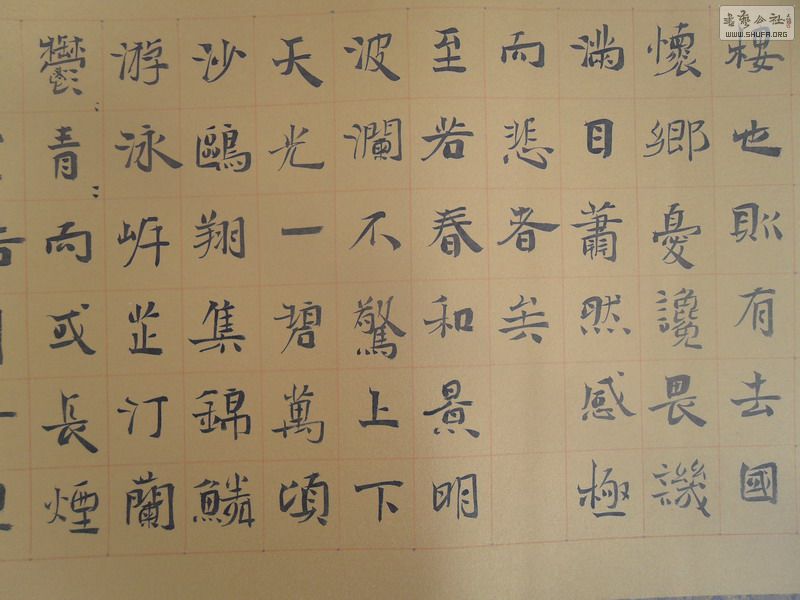 樓也則有去國
懷鄉憂讒畏譏
滿目蕭然感極
而悲者矣
至若春和景明
波瀾不驚上下
天光一碧萬頃
沙鷗翔集錦鱗
游泳岸芷汀蘭
鬱青而或長煙
書藝公社
WWW.SHUFA.ORG